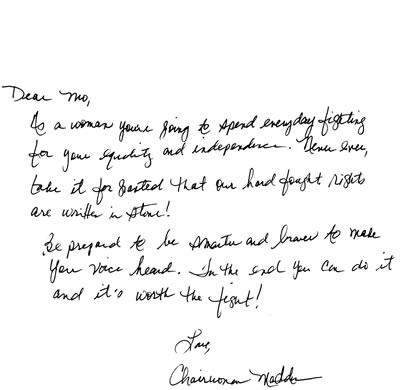 Dear Mo,
As a woman you're going to spend everyday fighting
for your equality and independence. Never ever,
take it for granted that our hard fought rights
are written in stone!
Be prepared to be smarter and braver to make
your voice heard. In the end you can do it
and it's worth the fight!
Love,
Chairwoman Maddox